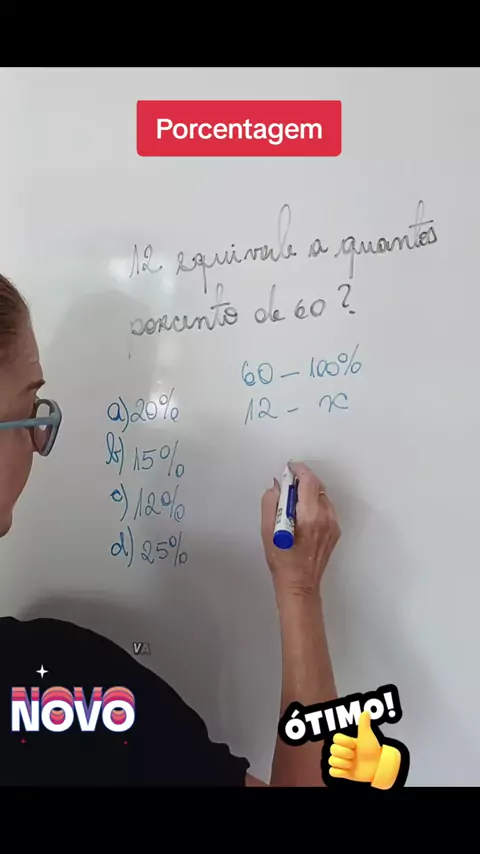 Porcentagem
12 equivale a quantos
porcento de 60?
60 – 100%
12 – x
a) 20%
b) 15%
c) 12%
d) 25%
VA
NOVO
ÓTIMO!